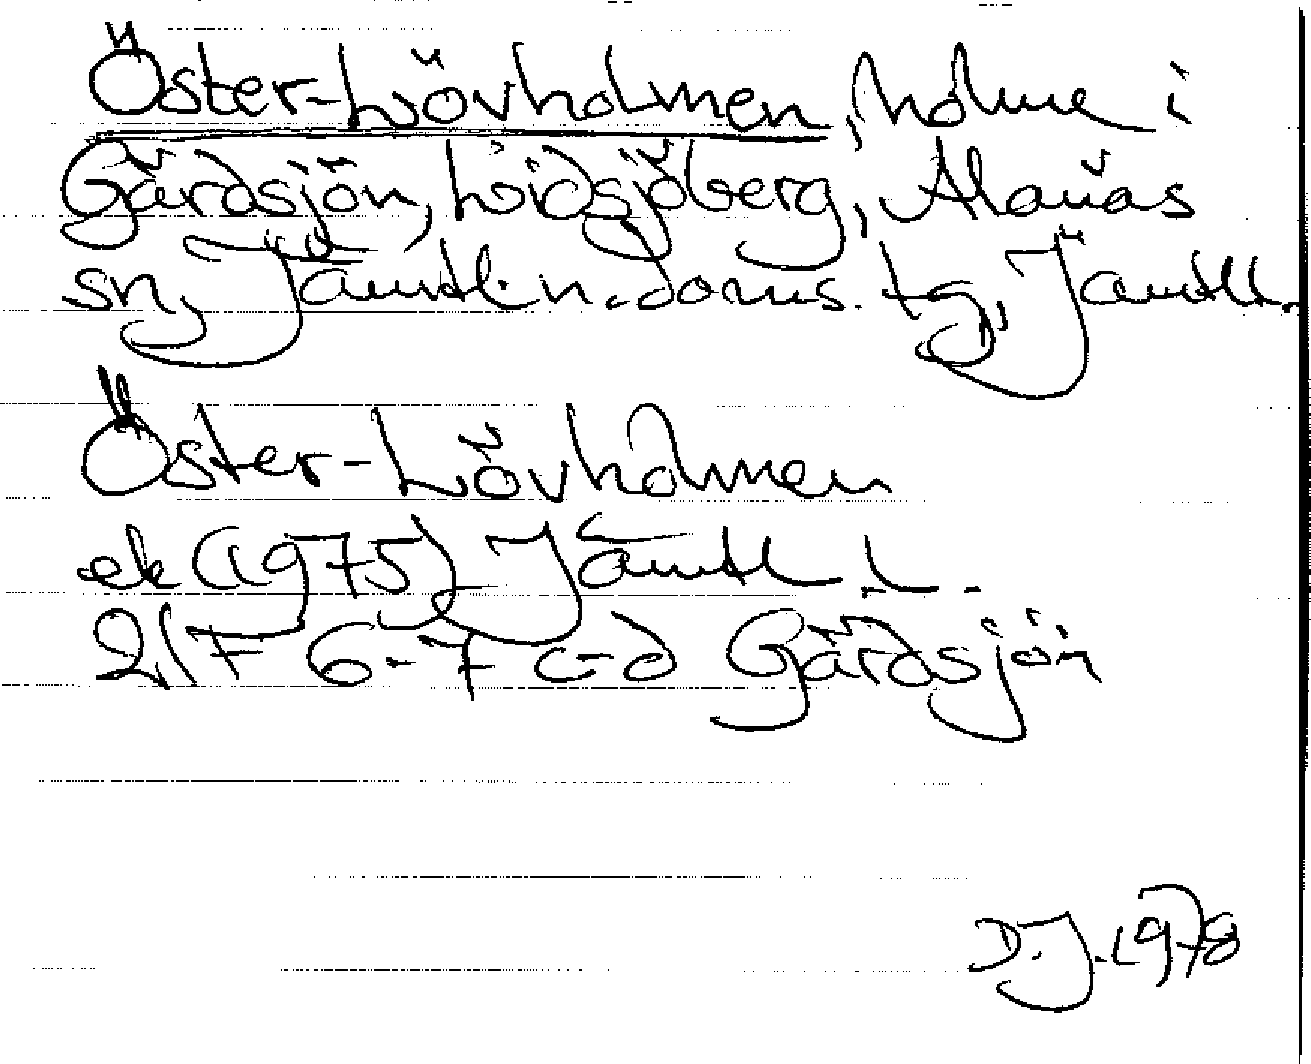 Öster-Lövholmen, holme i
Gårdsjön, Lidsjöberg, Alanäs
sn, Jämtl. n. doms. tg, Jämtl.
Öster-Lövholmen
ek (1975) Jämtl L.
21F 6-7 c-d Gårdsjön
D.J. 1978